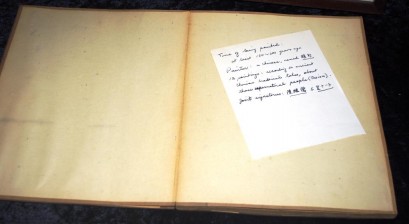 Time of being painted:
at least 150–200 years ago
Painter: a chinese, named
12 paintings, according to ancient
chinese historical tales, about
those supernatural people (Taoism).
Joint signature: